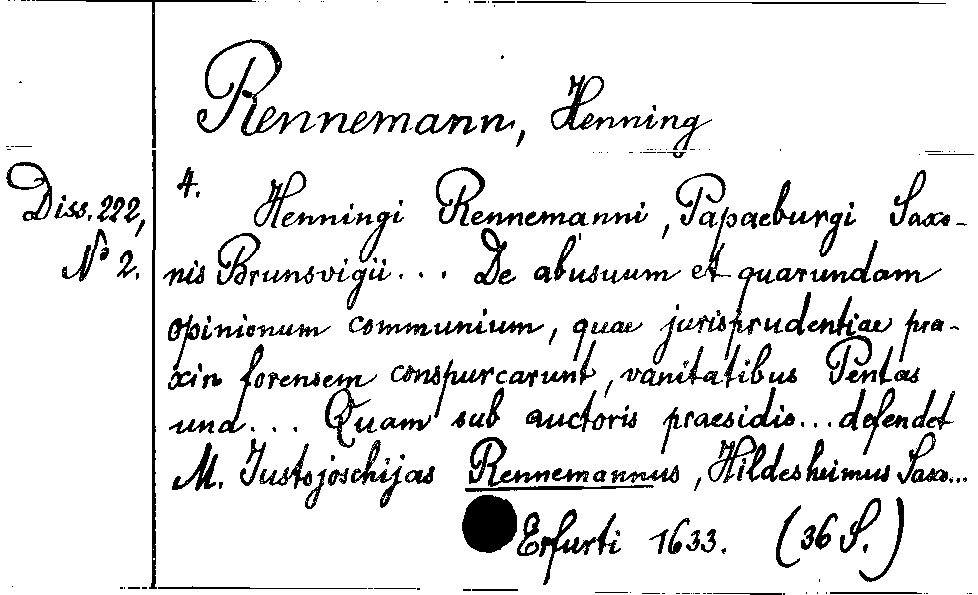 Rennemann, Henning
Diss. 222,
No 2.
4.
Henningi Rennemanni, Papaeburgi Saxo-
nis Brunsvigii... De abusuum et quarundam
opinionum communium, quae jurisprudentiae pra-
xin forensem conspurcarunt, vanitatibus Pentas
una... Quam sub auctoris praesidio... defendet
M. Justsjoschijas Rennemannus, Hildesheimus Saxo...
Erfurti 1633. (36 S.)